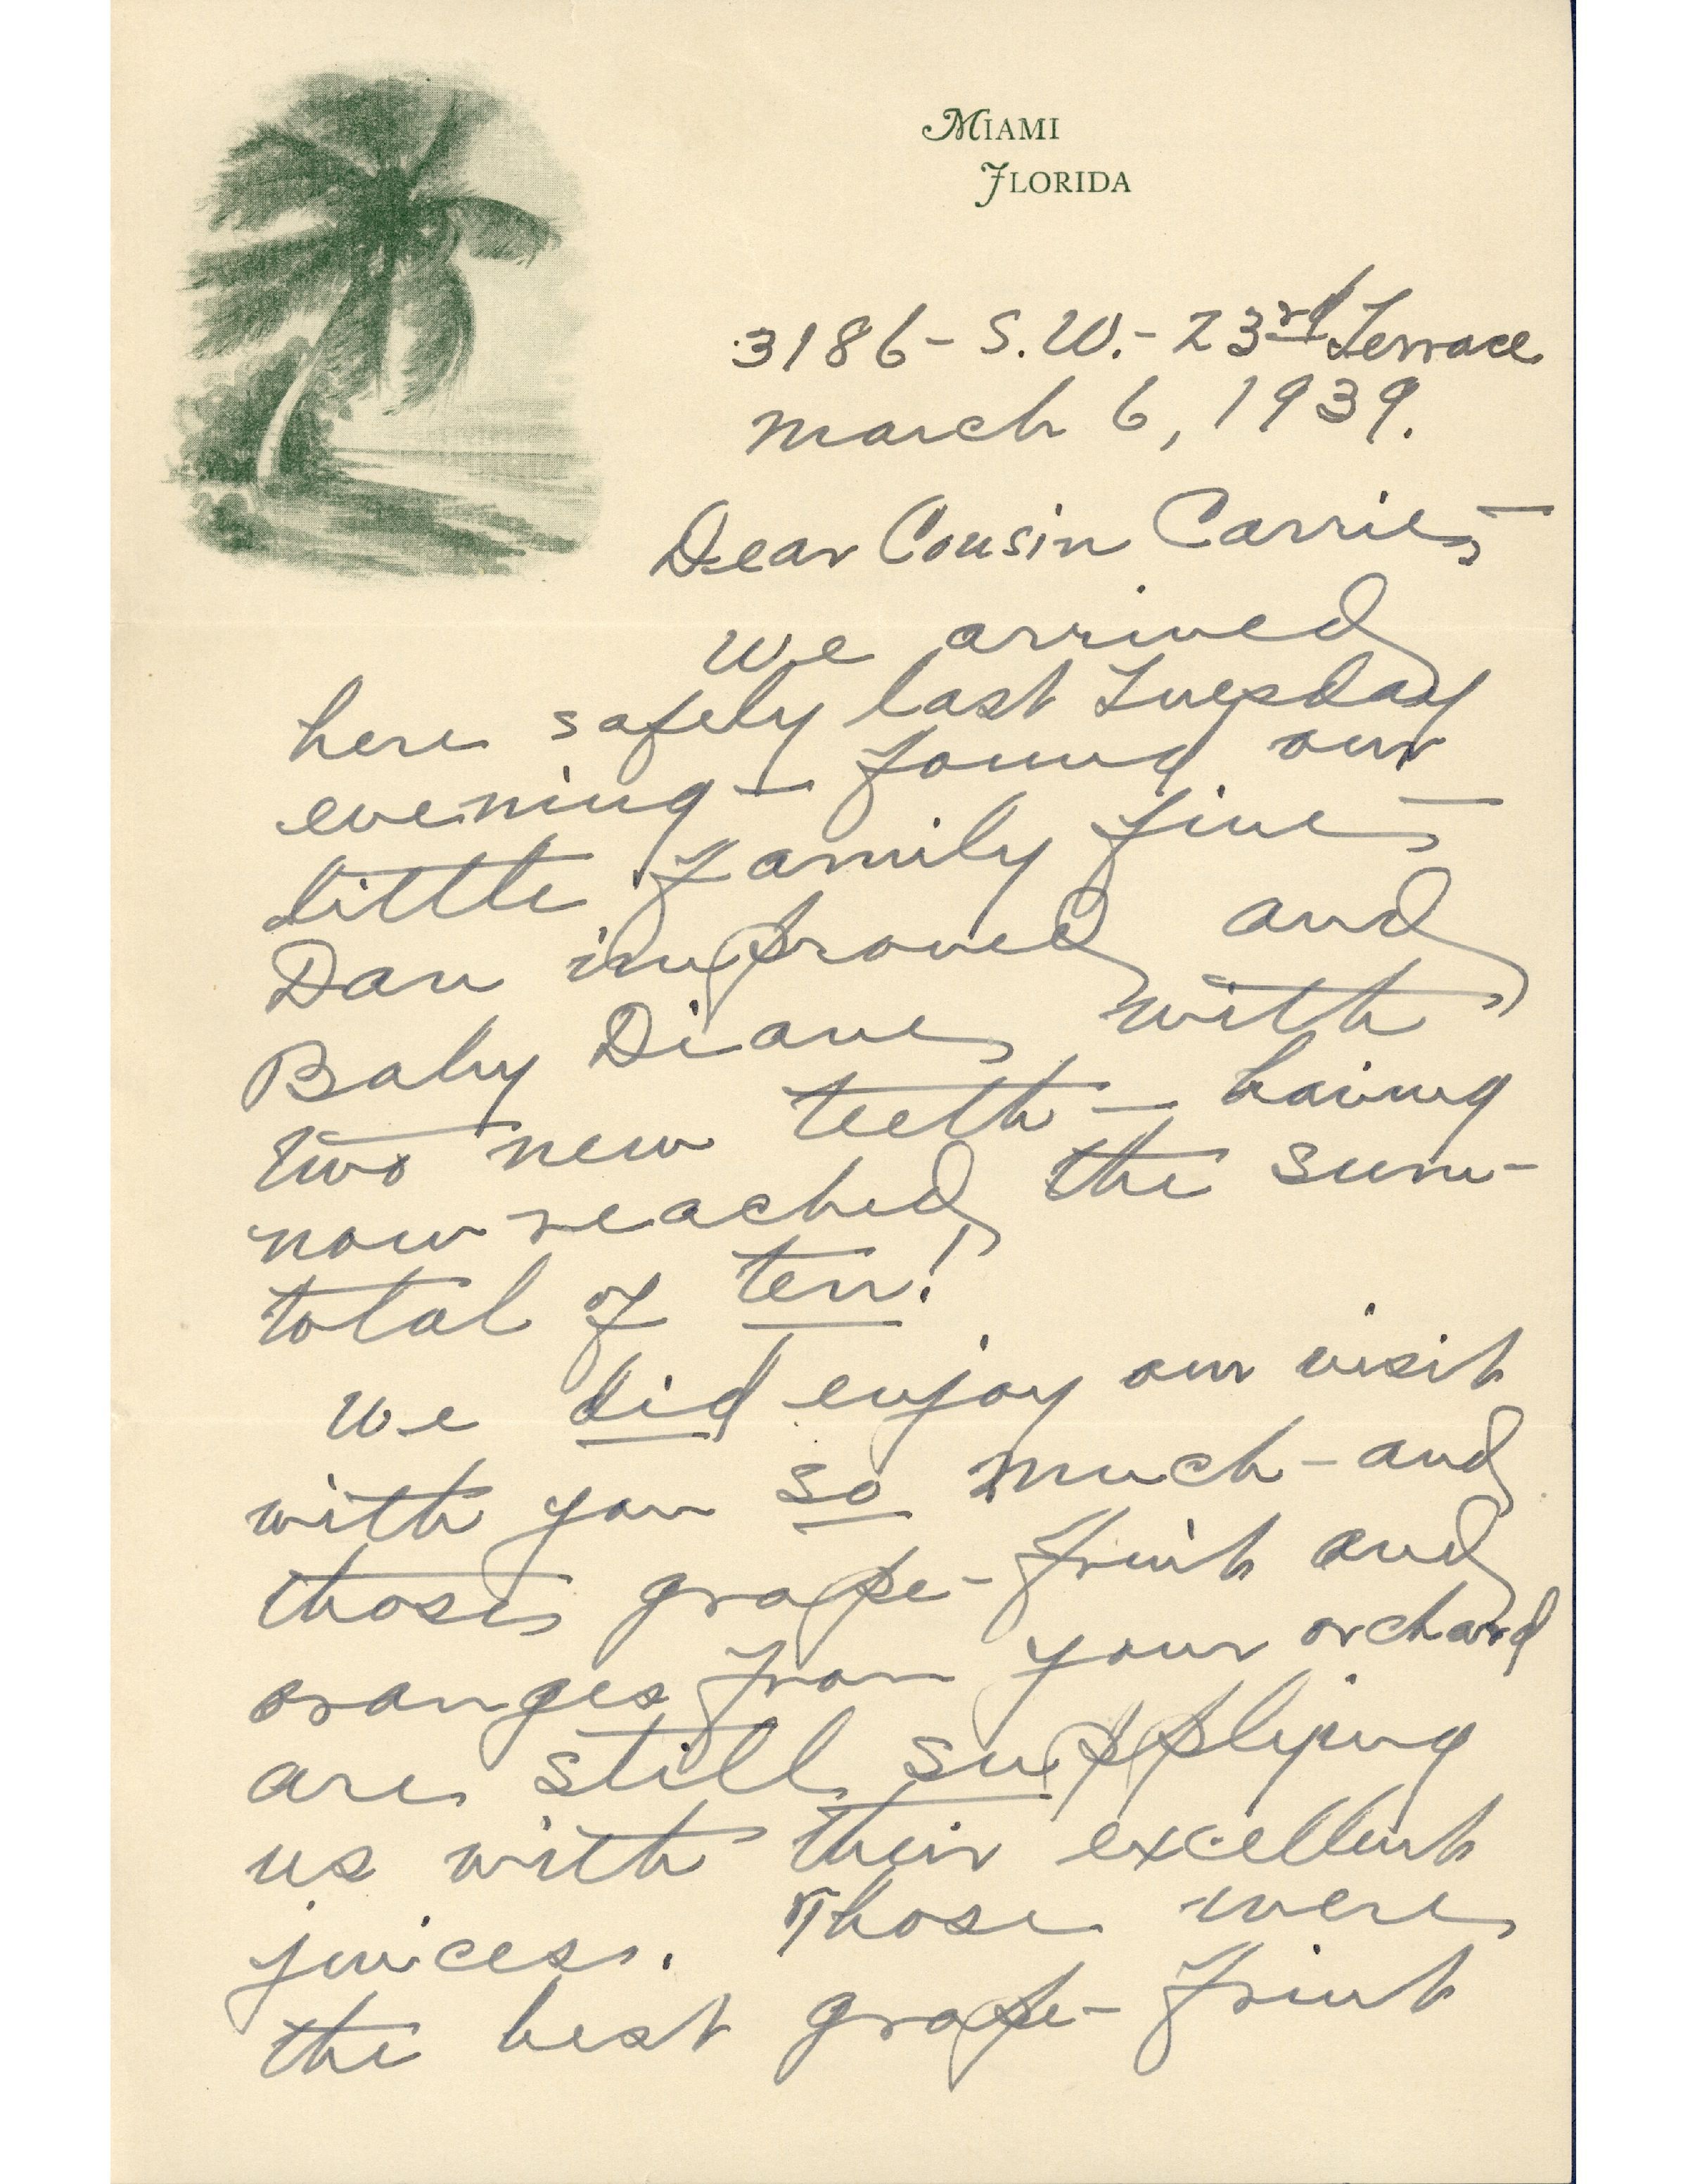 MIAMI
FLORIDA
3186 - S.W. - 23rd Terrace
March 6, 1939.
Dear Cousin Carrie, -
We arrived
here safely last Tuesday
evening - found our
little family fine, -
Dan improved and
Baby Diane, with
two new teeth - having
now reached the sum-
total of ten!
We did enjoy our visit
with you so much - and
those grape-fruit and
oranges from your orchard
are still supplying
us with their excellent
juices. Those were
the best grape-fruit